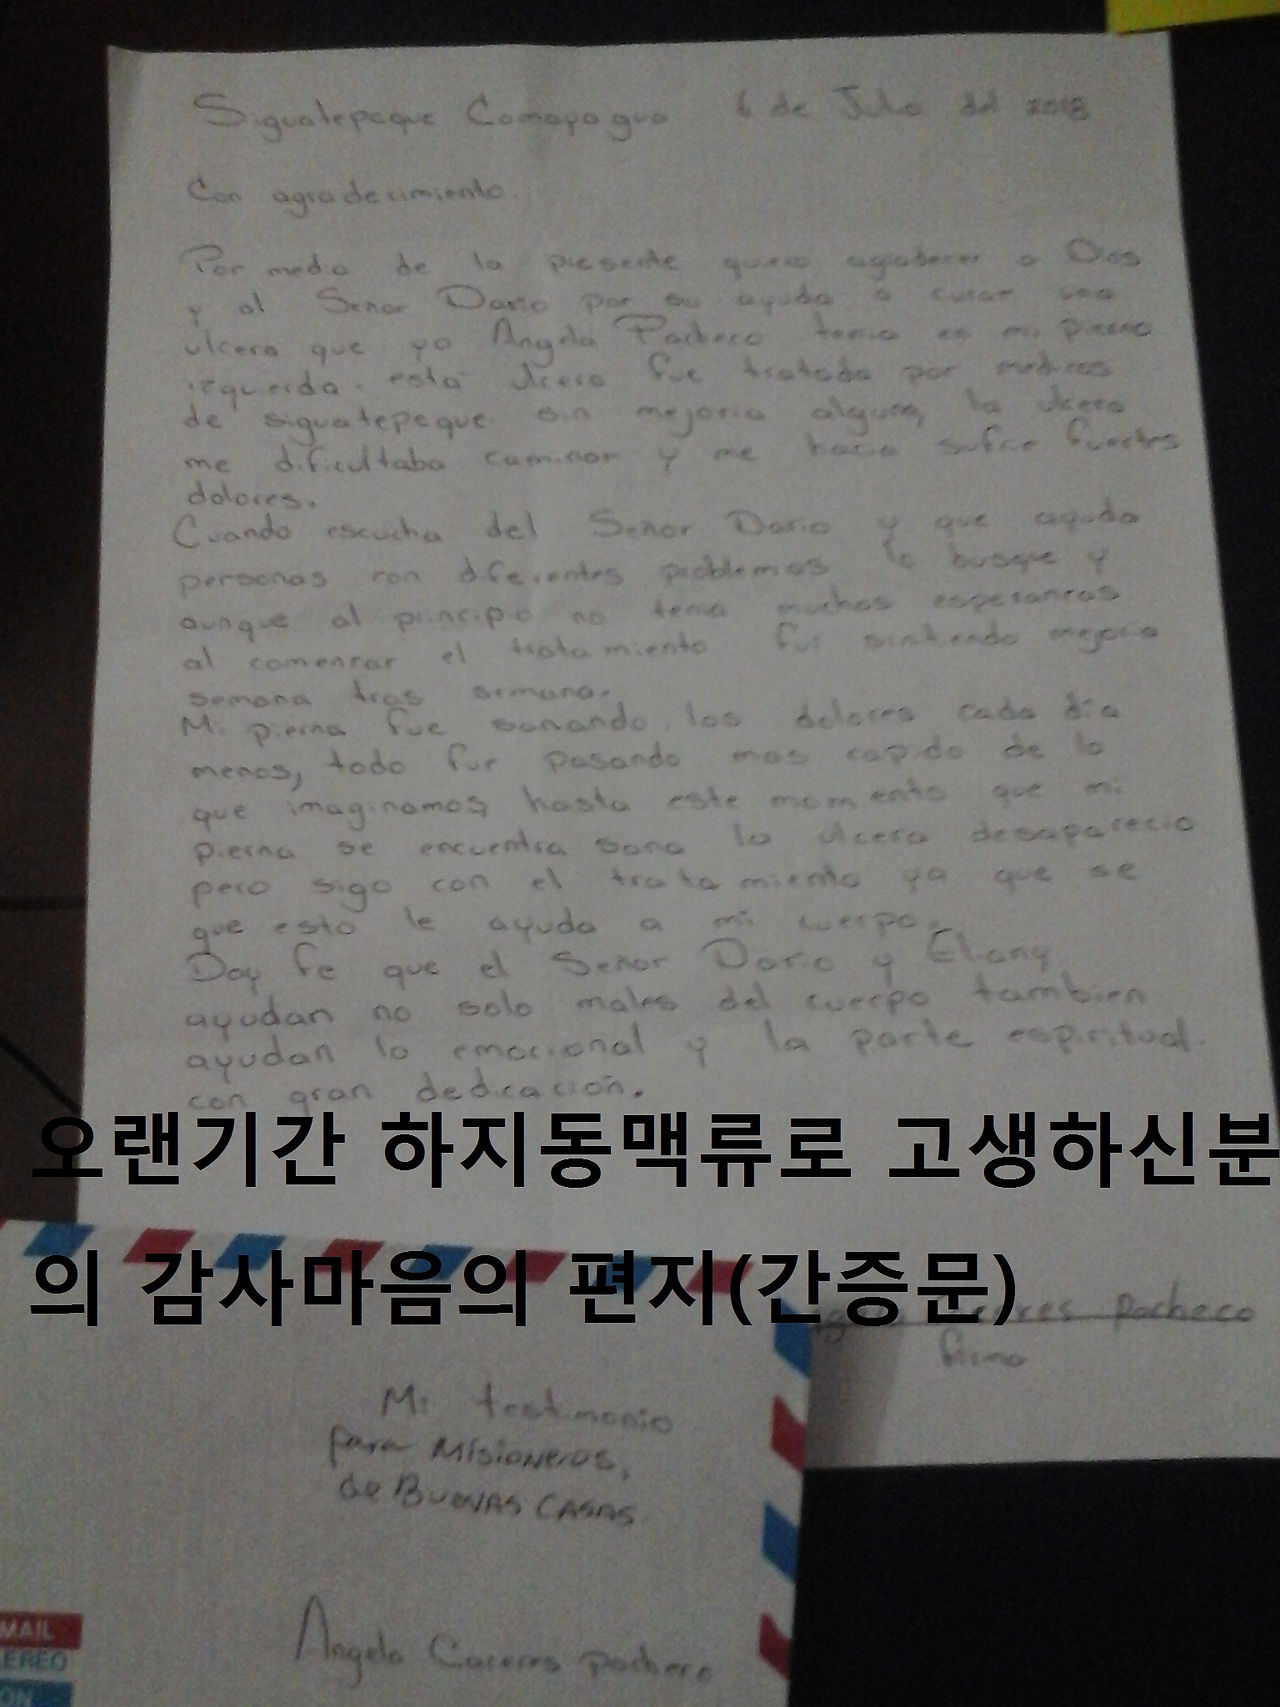 Siguatepeque Comayagua 6 de Julio del 2018
Con agradecimiento.
Por medio de la presente quiero agradecer a Dios
y al Señor Dario por su ayuda a curar una
ulcera que yo Angela Pacheco tenia en mi pierna
izquierda. esta ulcera fue tratada por medicos
de siguatepeque sin mejoria alguna, la ulcera
me dificultaba caminar y me hacia sufrir fuertes
dolores.
Cuando escucha del Señor Dario y que ayuda
personas con diferentes problemas lo busque y
aunque al principio no tenia muchas esperanzas
al comenzar el tratamiento fui sintiendo mejoria
semana tras semana.
Mi pierna fue sanando los dolores cada dia
menos, todo fue pasando mas rapido de lo
que imaginamos, hasta este momento que mi
pierna se encuentra sana la ulcera desaparecio
pero sigo con el tratamiento ya que se
que esto le ayuda a mi cuerpo.
Doy fe que el Señor Dario y Eliang
ayudan no solo males del cuerpo tambien
ayudan lo emocional y la parte espiritual.
con gran dedicación.
오랜기간 하지동맥류로 고생하신분
의 감사마음의 편지(간증문)
Caceres Pacheco
firma
Mi testimonio
para Misioneros,
de BUENAS CASAS
Angela Caceres pacheco
MAIL
EREO
ON